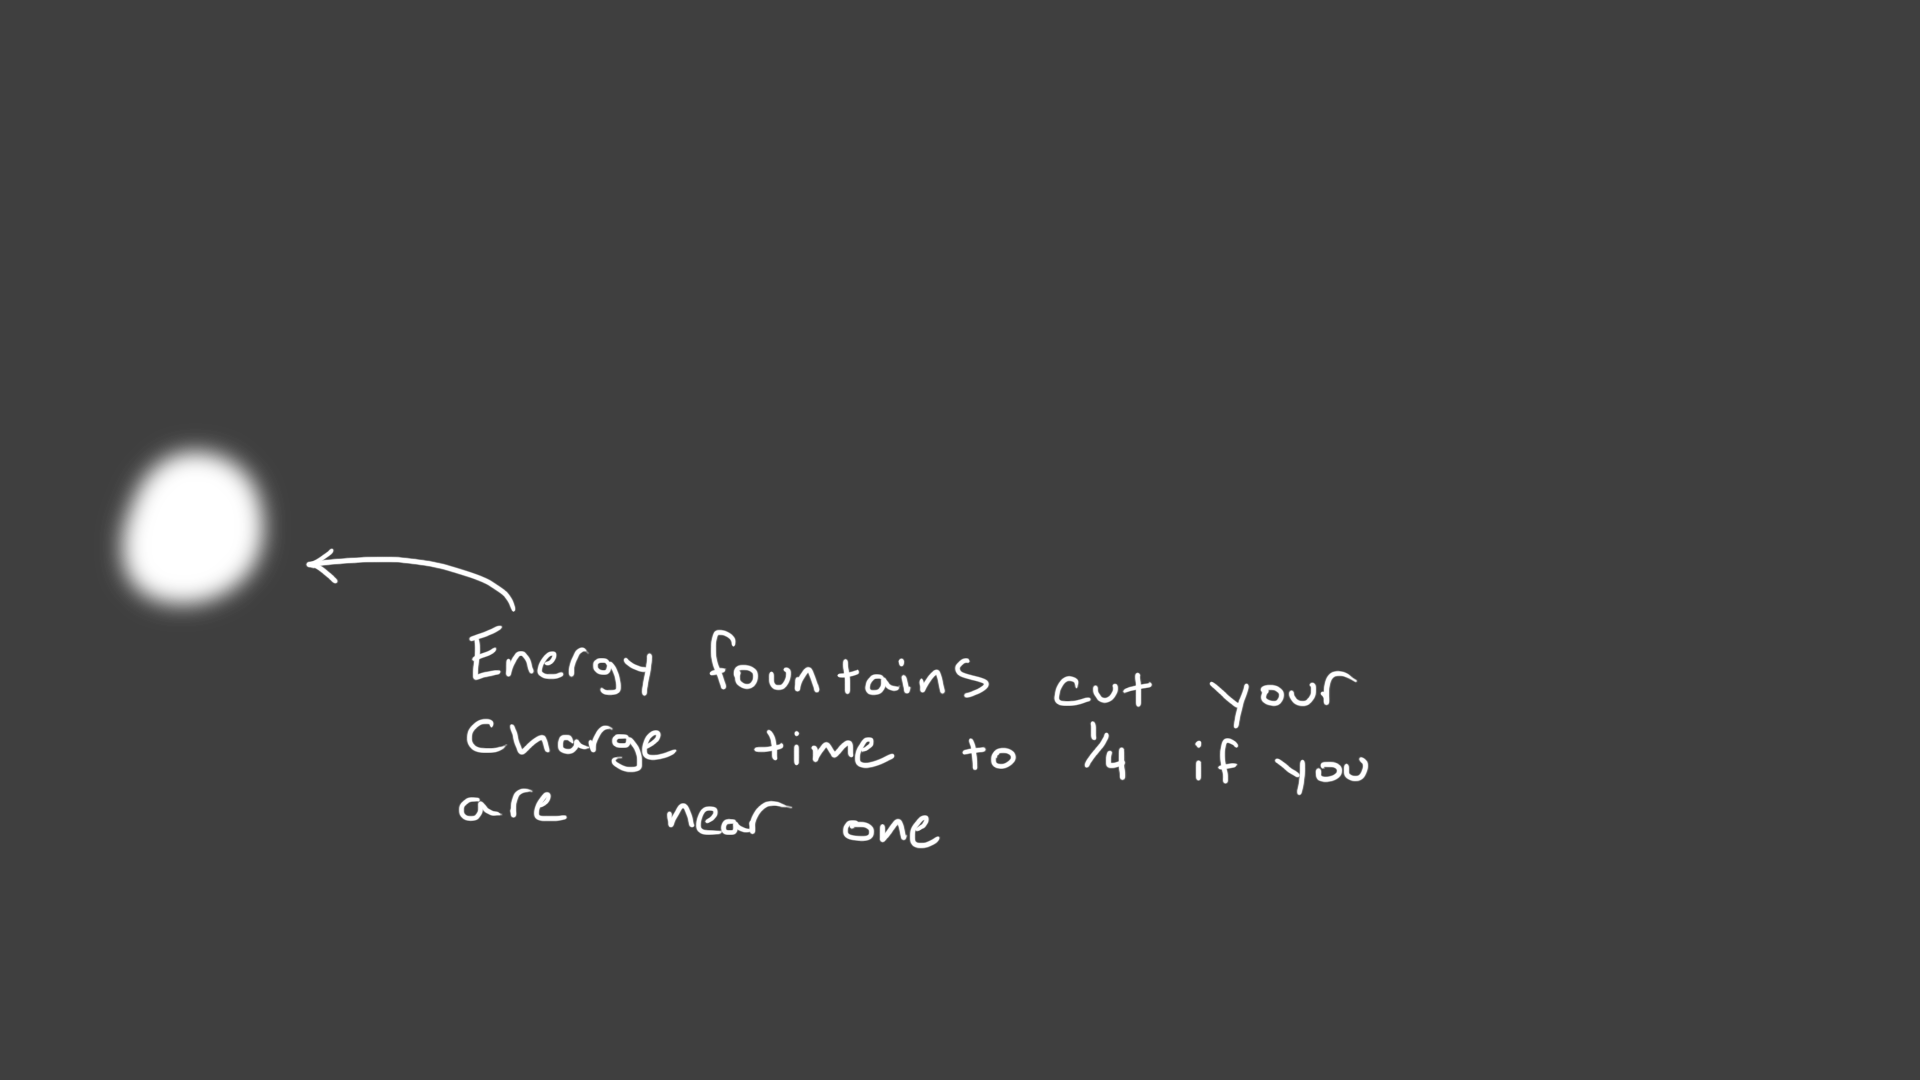 Energy fountains cut your
Charge time to 1/4 if you
are near one